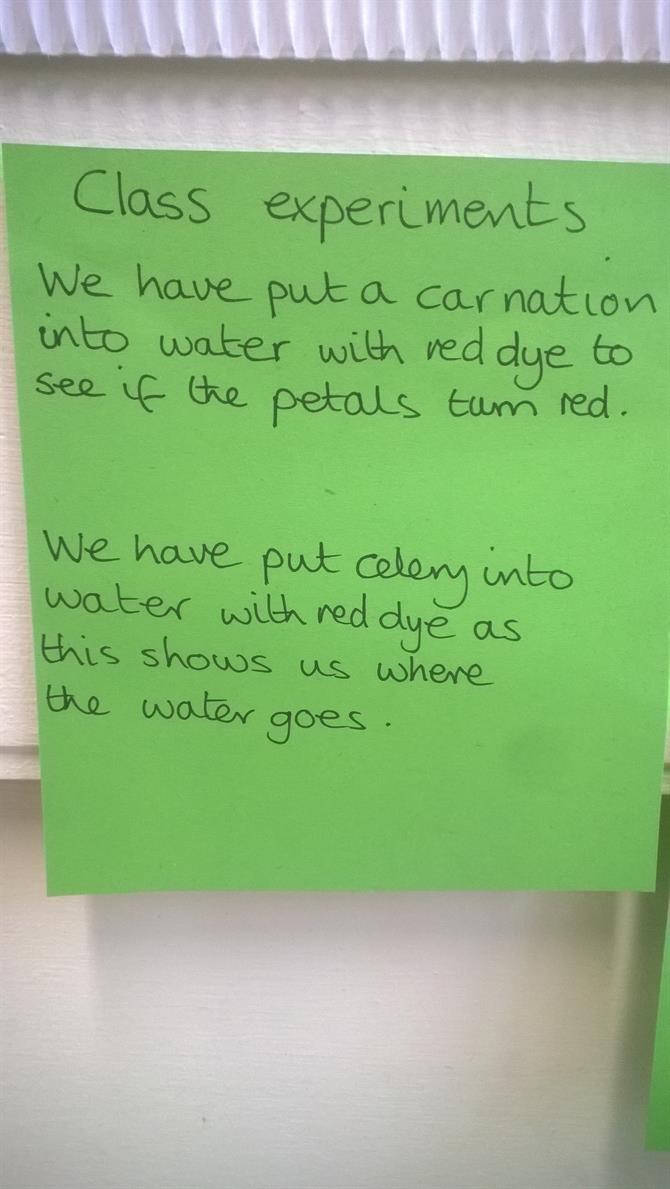 Class experiments
We have put a carnation
into water with red dye to
see if the petals turn red.
We have put celery into
water with red dye as
this shows us where
the water goes.